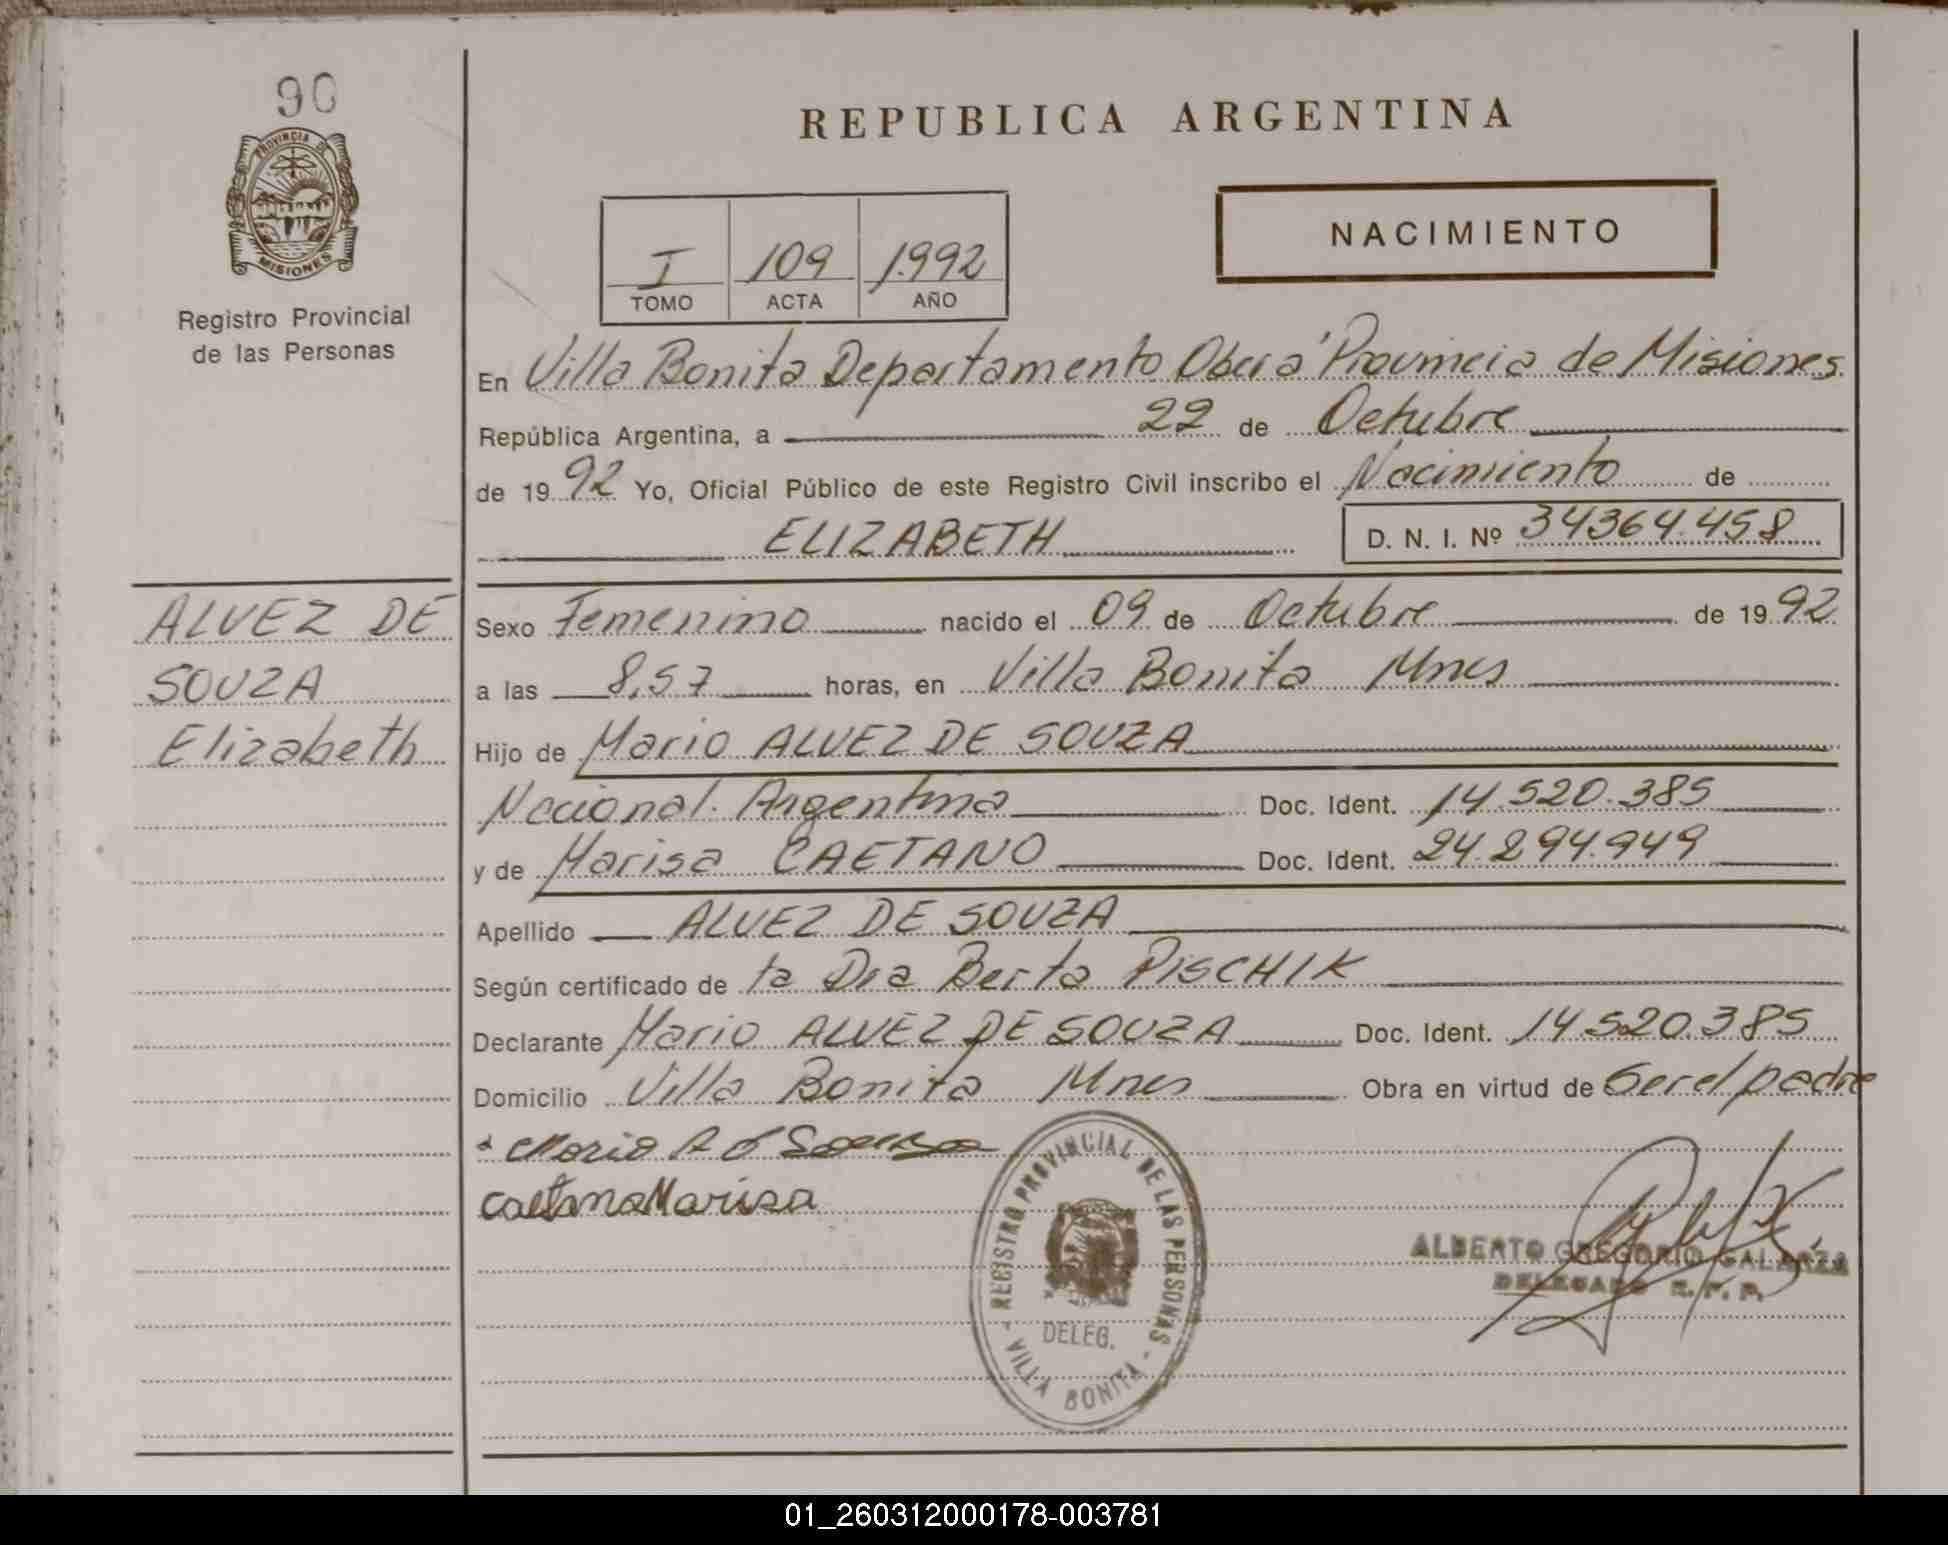 90
PROVINCIA DE
MISIONES
Registro Provincial
de las Personas
ALVEZ DE
SOUZA
Elizabeth
REPUBLICA ARGENTINA
I 109 1992
TOMO ACTA AÑO
NACIMIENTO
En Villa Bonita Departamento Oberá Provincia de Misiones
República Argentina, a 22 de Octubre
de 1992 Yo, Oficial Público de este Registro Civil inscribo el Nacimiento de
ELIZABETH D. N. I. Nº 34364.458
Sexo Femenino nacido el 09 de Octubre de 1992
a las 8,57 horas, en Villa Bonita Mnes
Hijo de Mario ALVEZ DE SOUZA
Nacional. Argentina Doc. Ident. 14.520.385
y de Marisa CAETANO Doc. Ident. 24.294.949
Apellido ALVEZ DE SOUZA
Según certificado de la Dra Berta PISCHIK
Declarante Mario ALVEZ DE SOUZA Doc. Ident. 14.520.385
Domicilio Villa Bonita Mnes Obra en virtud de Ser el padre
Mario A d Souza
Caetano Marisa
REGISTRO PROVINCIAL DE LAS PERSONAS
DELEG.
- VILLA BONITA -
ALBERTO GREGORIO GALARZA
DELEGADO R. P. P.
01_260312000178-003781